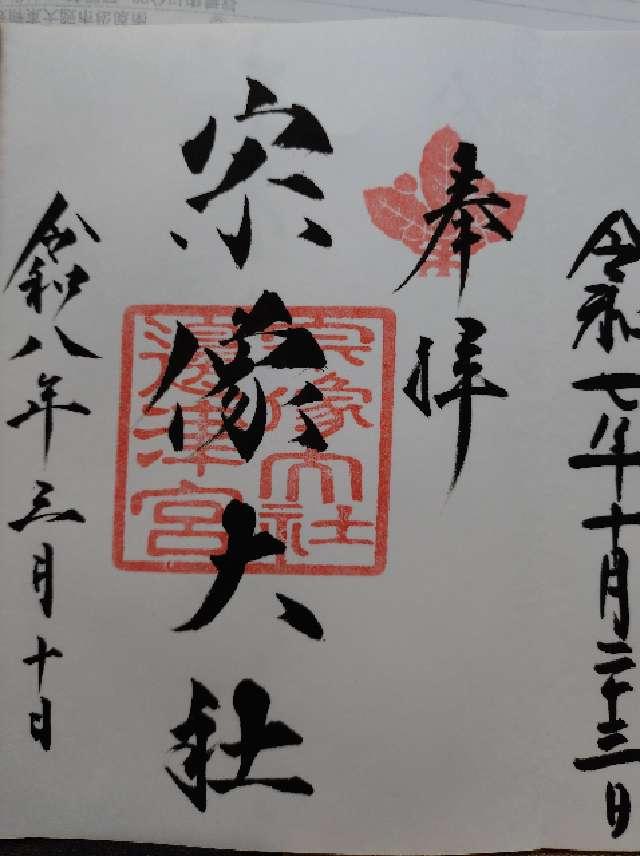 令和七年十月二十三日
奉拝
宗像大社
宗像大社
邊津宮
令和八年三月十日